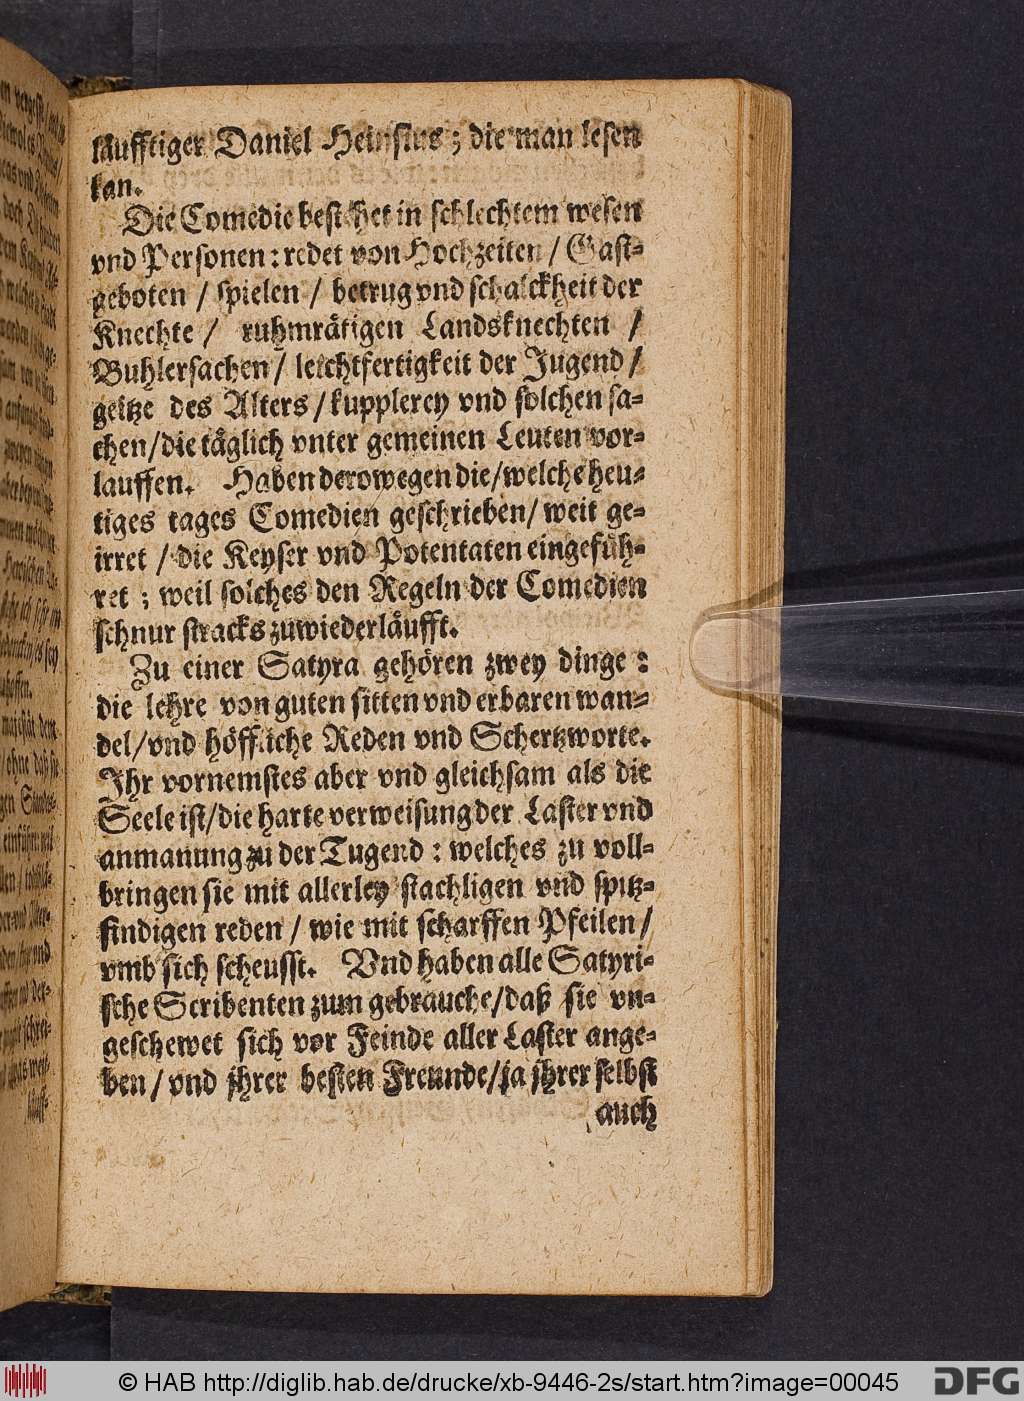 läufftiger Daniel Heinsius; die man lesen
kan.
Die Comedie bestehet in schlechtem wesen
vnd Personen: redet von Hochzeiten / Gast-
geboten / spielen / betrug vnd schalckheit der
Knechte / ruhmrätigen Landsknechten /
Buhlersachen / leichtfertigkeit der Jugend /
geitze des Alters / kupplerey vnd solchen sa-
chen / die täglich vnter gemeinen Leuten vor-
lauffen. Haben derowegen die / welche heu-
tiges tages Comedien geschrieben / weit ge-
irret / die Keyser vnd Potentaten eingefüh-
ret ; weil solches den Regeln der Comedien
schnur stracks zuwiederläufft.
Zu einer Satyra gehören zwey dinge :
die lehre von guten sitten vnd erbaren wan-
del / vnd höffliche Reden vnd Schertzworte.
Ihr vornemstes aber vnd gleichsam als die
Seele ist / die harte verweisung der Laster vnd
anmanung zu der Tugend : welches zu voll-
bringen sie mit allerley stachligen vnd spitz-
findigen reden / wie mit scharffen Pfeilen /
vmb sich scheusst. Vnd haben alle Satyri-
sche Scribenten zum gebrauche / daß sie vn-
geschewet sich vor Feinde aller Laster ange-
ben / vnd jhrer besten Freunde / ja jhrer selbst
auch
© HAB http://diglib.hab.de/drucke/xb-9446-2s/start.htm?image=00045
DFG